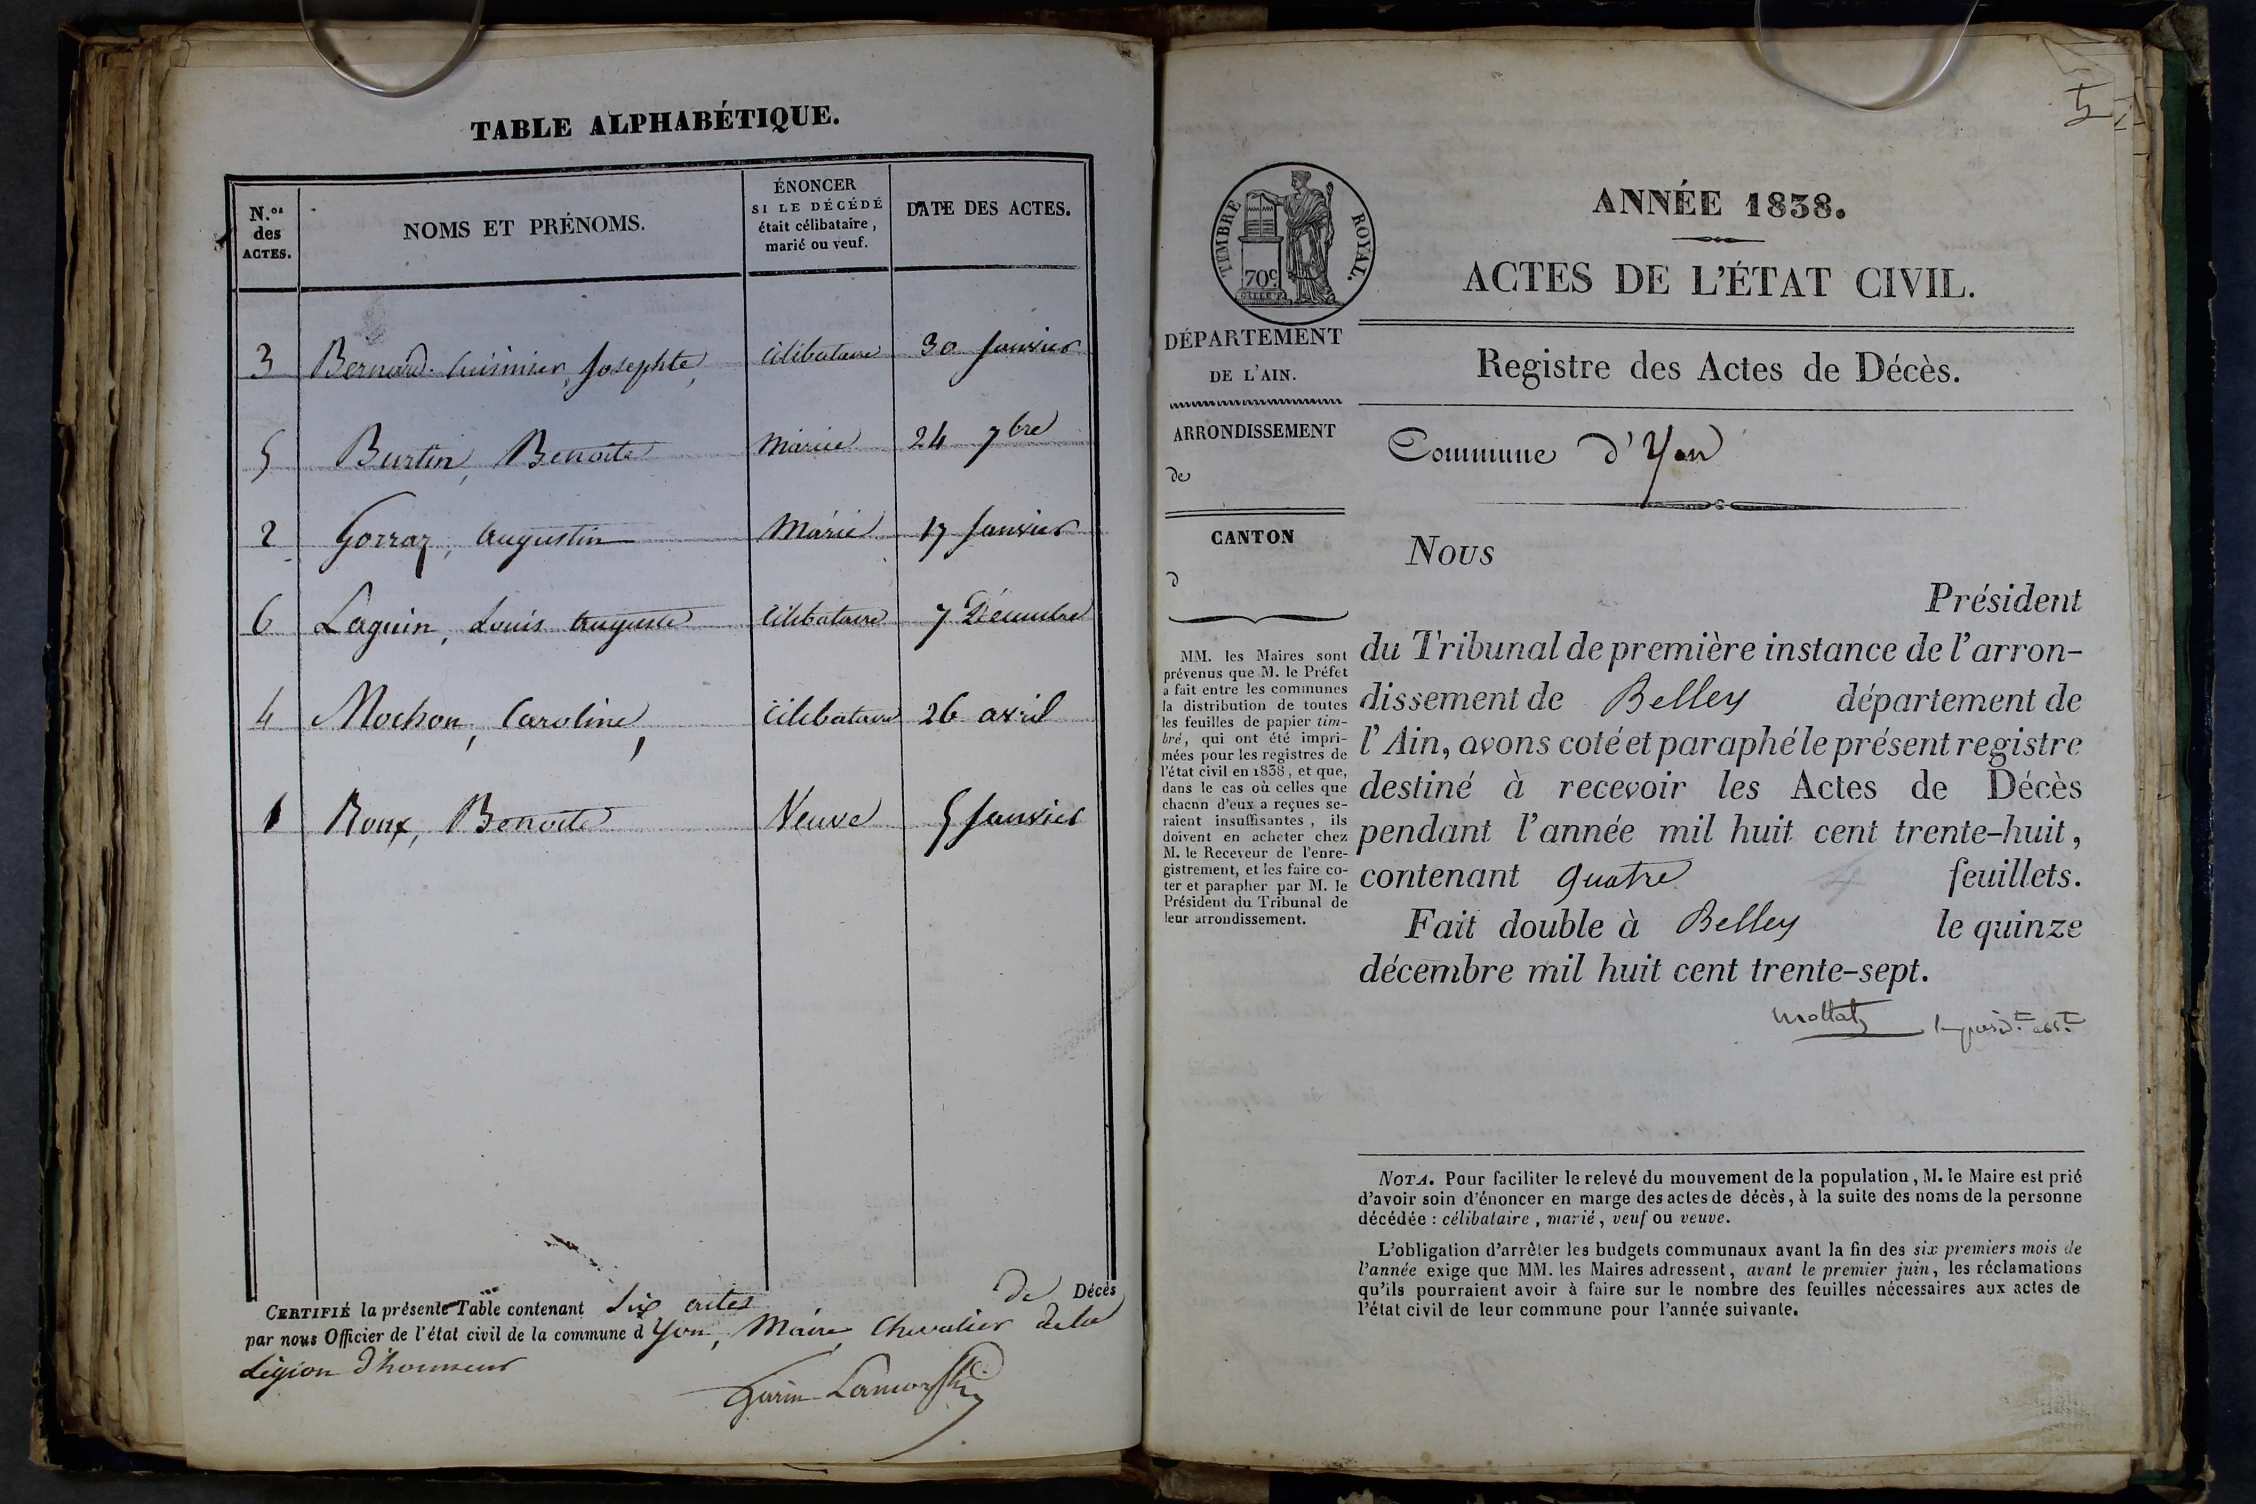 TABLE ALPHABÉTIQUE.
N.os des ACTES.
NOMS ET PRÉNOMS.
ÉNONCER
SI LE DÉCÉDÉ
était célibataire,
marié ou veuf.
DATE DES ACTES.
3 Bernard Josephte, célibataire 30 Janvier
5 Burtin, Benoite Mariée 24 7bre
2 Gorraz, Augustin Marié 17 Janvier
6 Laguin, Louis Auguste Célibataire 7 Décembre
4 Mochon, Caroline, Célibataire 26 avril
1 Roux, Benoite Veuve 5 Janvier
CERTIFIÉ la présente Table contenant Six actes de Décès
par nous Officier de l'état civil de la commune d Yon, Maire Chevalier de la
Légion d'honneur
5
TIMBRE ROYAL.
70c
DÉPARTEMENT
DE L'AIN.
ARRONDISSEMENT
de
CANTON
d
MM. les Maires sont
prévenus que M. le Préfet
a fait entre les communes
la distribution de toutes
les feuilles de papier tim-
bré, qui ont été impri-
mées pour les registres de
l'état civil en 1838, et que,
dans le cas où celles que
chacun d'eux a reçues se-
raient insuffisantes, ils
doivent en acheter chez
M. le Receveur de l'enre-
gistrement, et les faire co-
ter et parapher par M. le
Président du Tribunal de
leur arrondissement.
ANNÉE 1838.
ACTES DE L'ÉTAT CIVIL.
Registre des Actes de Décès.
Commune d'Yon
Nous
Président
du Tribunal de première instance de l'arron-
dissement de Belley département de
l'Ain, avons coté et paraphé le présent registre
destiné à recevoir les Actes de Décès
pendant l'année mil huit cent trente-huit,
contenant quatre feuillets.
Fait double à Belley le quinze
décembre mil huit cent trente-sept.
NOTA. Pour faciliter le relevé du mouvement de la population, M. le Maire est prié
d'avoir soin d'énoncer en marge des actes de décès, à la suite des noms de la personne
décédée : célibataire, marié, veuf ou veuve.
L'obligation d'arrêter les budgets communaux avant la fin des six premiers mois de
l'année exige que MM. les Maires adressent, avant le premier juin, les réclamations
qu'ils pourraient avoir à faire sur le nombre des feuilles nécessaires aux actes de
l'état civil de leur commune pour l'année suivante.